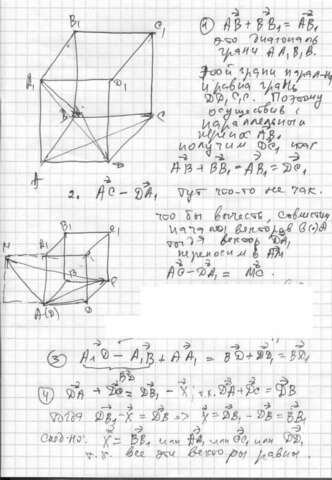 B₁
C₁
A₁
D₁
B
C
A
D
1) AB⃗ + BB₁⃗ = AB₁⃗
это диагональ
грани AA₁B₁B.
Этой грани паралл-на
и равна грань
DD₁C₁C. Поэтому
осуществив
параллельный
перенос AB₁
получим DC₁⃗
AB⃗ + BB₁⃗ = AB₁⃗ = DC₁⃗
2. AC⃗ - DA₁⃗ тут что-то не так.
что бы вычесть, совместим
начала векторов
тогда вектор DA₁⃗
переносим в AM⃗
AC⃗ - DA₁⃗ = MC⃗
M
A₁
B₁
C₁
B
C
A(D)
D
3) A₁D⃗ - A₁B⃗ + AA₁⃗ = BD⃗ + DD₁⃗ = BD₁⃗
BD⃗
4) DA⃗ + DC⃗ = DB₁⃗ - X⃗; т.к. DA⃗ + DC⃗ = DB⃗
тогда DB₁⃗ - X⃗ = DB⃗ => X⃗ = DB₁⃗ - DB⃗ = BB₁⃗
X⃗ = BB₁⃗ или AA₁⃗ или CC₁⃗ или DD₁⃗
т.к. все эти векторы равны.